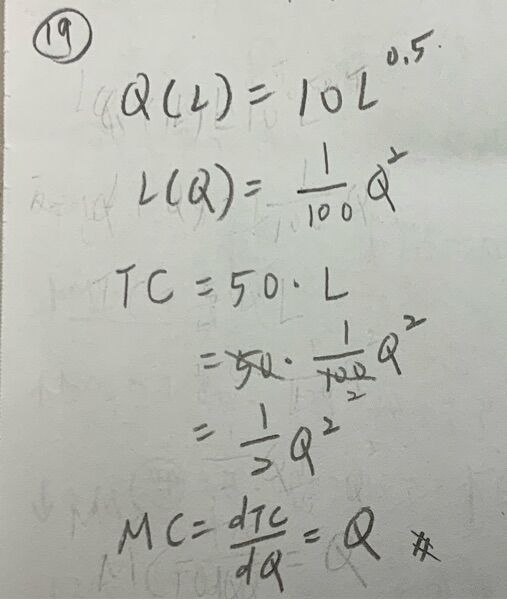 19
Q(L) = 10L^0.5
L(Q) = 1/100 Q^2
TC = 50 · L
= 50 · 1/100 Q^2
2
= 1/2 Q^2
MC = dTC/dQ = Q #